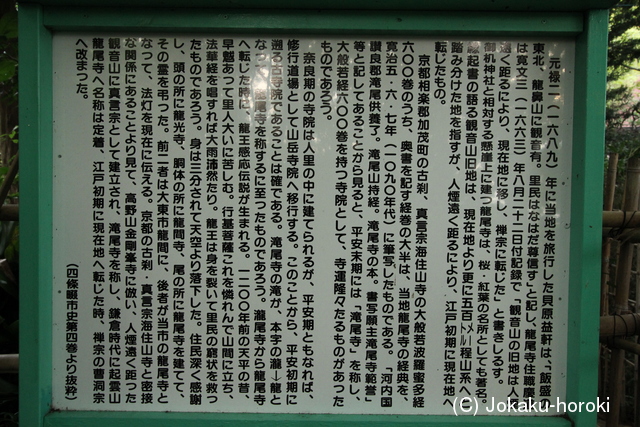 元禄二（一六八九）年に当地を旅行した貝原益軒は、「飯盛
東北、龍鼻山に観音有。里民はなはだ尊信す」と記し、龍尾寺住職慶
は寛文三（一六六三）年八月二十二日付記録で「観音山の旧地は人
遠く距るにより、現在地に移し、禅宗に転じた」と書きしるす。
御机神社と相対する懸崖上に建つ龍尾寺は、桜・紅葉の名所としても著名
縁起書の語る観音山旧地は、現在地より更に五百メートル程山系へ
踏み分けた地を指すが、人煙遠く距るにより、江戸初期に現在地へ
転じたもの。
京都相楽郡加茂町の古刹、真言宗海住山寺の大般若波羅蜜多経
六〇〇巻のうち、奥書を記す経巻の大半は、当地龍尾寺の経典を、
寛治五・六・七年（一〇九〇年代）に筆写したものである。「河内国
讃良郡滝尾供養了。滝尾山持経。滝尾寺の本。書写願主滝尾寺範誉」
等と記してあることから見ると、平安末期には「滝尾寺」を称し、
大般若経六〇〇巻を持つ寺院として、寺運隆々たるものがあった
ものであろう。
奈良期の寺院は人里の中に建てられるが、平安期ともなれば、
修行道場として山岳寺院へ移行する。このことから、平安初期に
遡る古寺院であることは確である。滝尾寺の滝が、本字の瀧―龍と
なって、龍尾寺を称するに至ったものであろう。瀧尾寺から龍尾寺
へ転じた時に、龍王感応伝説が生まれる。一二〇〇年前の天平の昔
早越あって里人大いに苦しむ。行基菩薩これを憐れんで山間に立ち、
法華経を唱すれば大雨沛然たり。龍王は身を裂いて里民の窮状を救っ
たものであろう。身は三分されて天空より落下した。住民深く感謝
し、頭の所に龍光寺、胴体の所に龍間寺、尾の所に龍尾寺を建てて、
その霊を弔った。前二者は大東市龍間に、後者が当市の龍尾寺と
なって、法灯を現在に伝える。京都の古刹・真言宗海住山寺と密接
な関係にあることより見て、高野山金剛峯寺に倣い、人煙遠く距った
観音山に真言宗として建立され、滝尾寺を称し、鎌倉時代に起雲山
龍尾寺へ名称は定着、江戸初期に現在地へ転じた時、禅宗の曹洞宗
へ改まった。
（四條畷市史第四巻より抜粋）
(C) Jokaku-horoki